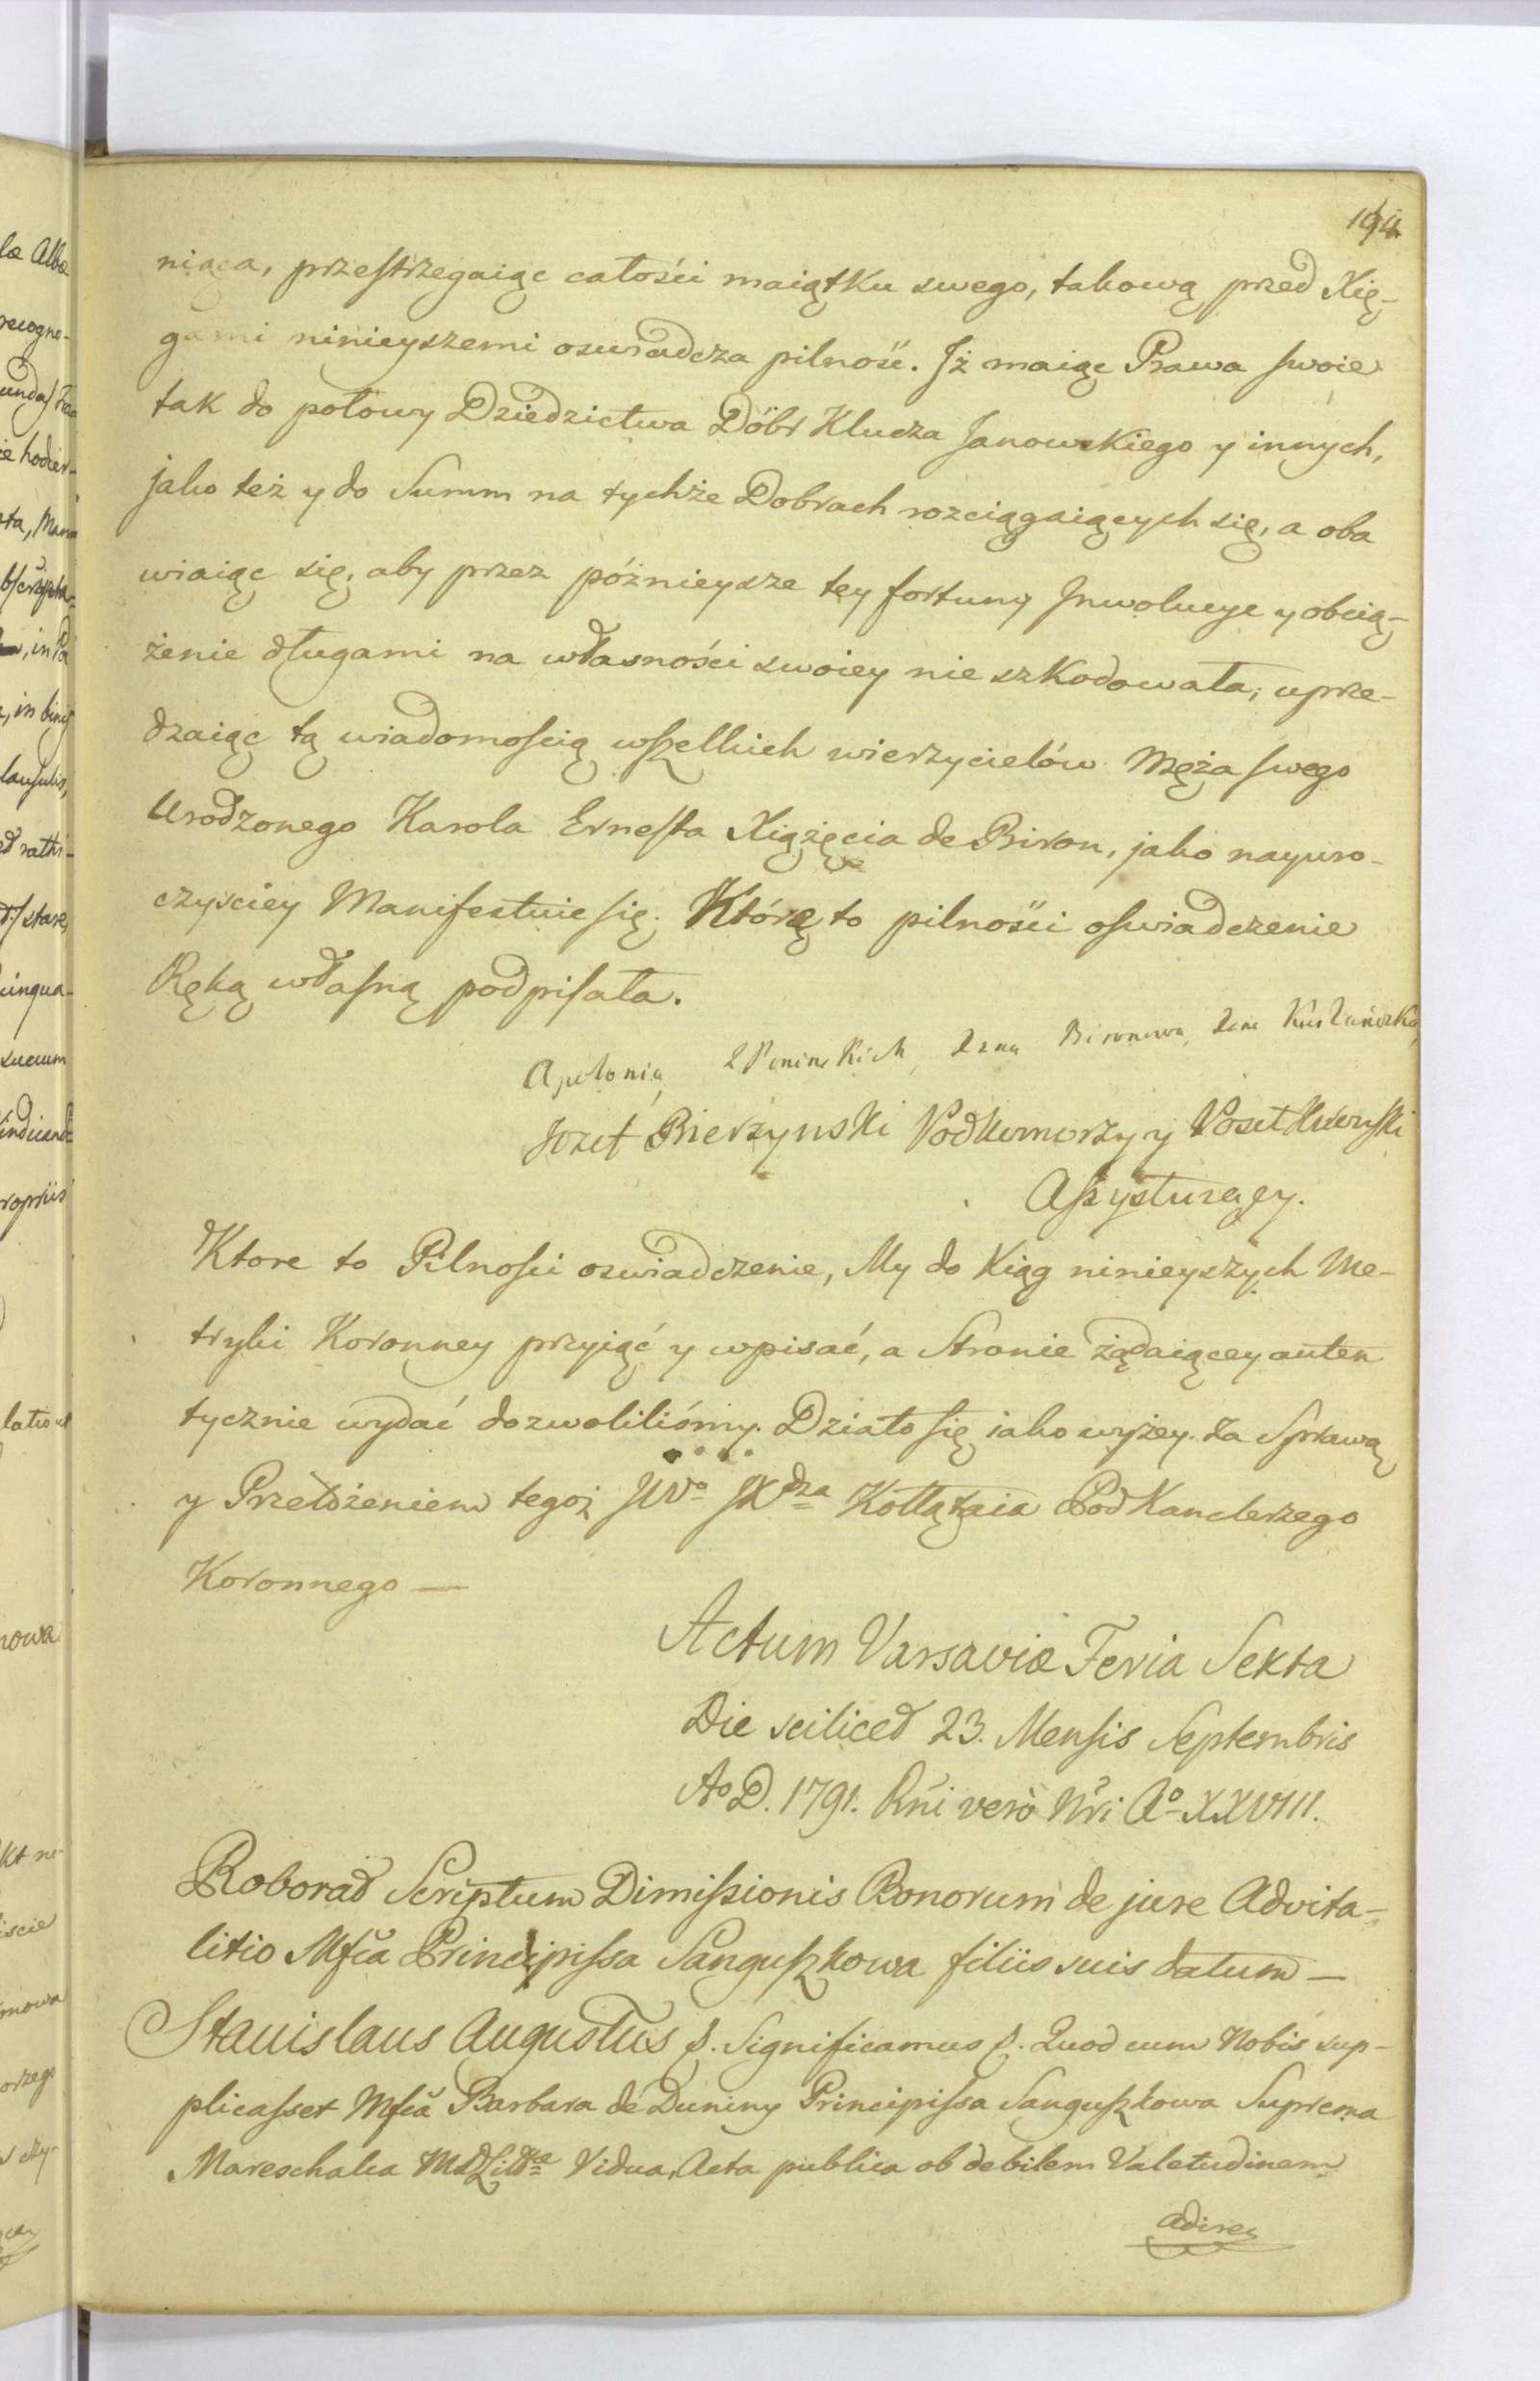 194
niąca, przestrzegaiąc całości maiątku swego, takową przed Xię-
gami ninieyszemi oswiadcza pilność. Jż maiąc Prawa swoie
tak do połowy Dziedzictwa Dóbr Klucza Janowskiego y innych,
jako też y do Summ na tychże Dobrach rozciągaiących się, a oba
wiaiąc się, aby przez póżnieysze tey fortuny Jnwolucye y obcią-
żenie długami na własności swoiey nie szkodowała, uprze-
dzaiąc tą wiadomością wszelkich wierzycielów Męża swego
Urodzonego Karola Ernesta Xiążęcia de Biron, jako nayuro-
czyściey Manifestuie się. Którę to pilności oswiadczenie
Ręką własną podpisała.
Apolonia z Poninskich, Xzna Bironowa, Xna Kurlandzka,
Jozef Bierzynski Podkomorzy y Poseł Kiiowski
Assystuiący.
Ktore to Pilności oswiadczenie, My do Xiąg ninieyszych Me-
tryki Koronney przyiąć y wpisać, a Stronie żądaiącey auten
tycznie wydać dozwoliliśmy. Działo się iako wyżey. za Sprawą
y Przełożeniem tegoż JWo JXdza Kołłątaia Pod Kanclerzego
Koronnego —
Actum Varsaviæ Feria Sexta
Die scilicet 23. Mensis Septembris
Ao D. 1791. Rńi verò Nri Ao XXVIII.
Roborat Scriptum Dimissionis Bonorum de jure Advita-
litio Mfca Principissa Sanguszkowa filiis suis datum —
Stanislaus Augustus &. Significamus &. Quod cum Nobis sup-
plicasset Mfca Barbara de Duniny Principissa Sanguszkowa Suprema
Mareschalca MDLitta Vidua, Acta publica ob debilem Valetudinem
adire